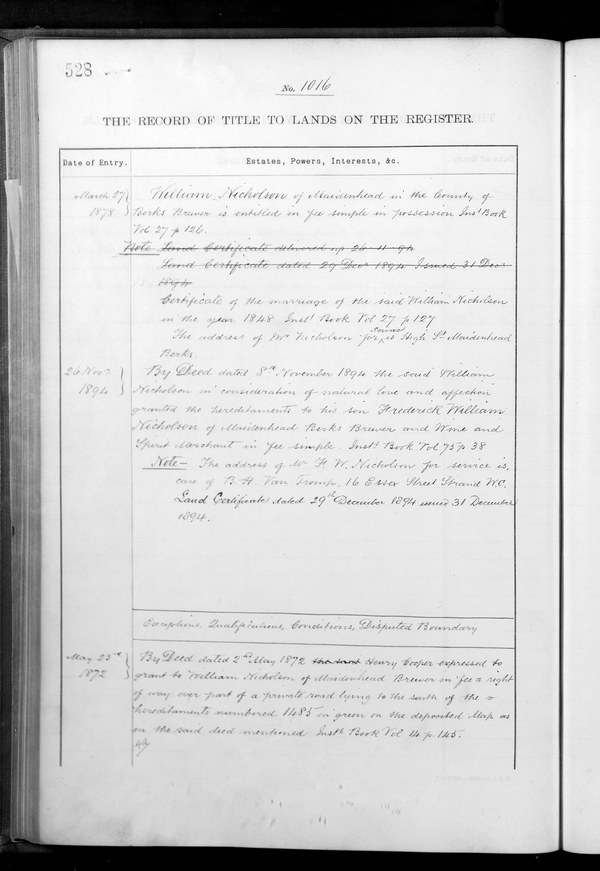 528
No. 1016
THE RECORD OF TITLE TO LANDS ON THE REGISTER.
Date of Entry.
Estates, Powers, Interests, &c.
March 27
1878
William Nicholson of Maidenhead in the County of
Berks Brewer is entitled in fee simple in possession Inst Book
Vol 27 p 126.
Note Land Certificate delivered up 26 11 94
Land Certificate dated 29 Decr 1894 Issued 31 Decr
1894
Certificate of the marriage of the said William Nicholson
in the year 1848 Inst Book Vol 27 p 127
The address of Mr Nicholson for service is High St Maidenhead
Berks
26 Novr
1894
By Deed dated 8th November 1894 the said William
Nicholson in consideration of natural love and affection
granted the hereditaments to his son Frederick William
Nicholson of Maidenhead Berks Brewer and Wine and
Spirit Merchant in fee simple. Inst Book Vol 75 p 38
Note - The address of Mr F. W. Nicholson for service is,
care of B. H. Van Tromp, 16 Essex Street Strand W.C.
Land Certificate dated 29th December 1894 issued 31 December
1894.
Exceptions, Qualifications, Conditions, Disputed Boundary
May 25th
1872
By Deed dated 2nd May 1872 the said Henry Cooper expressed to
grant to William Nicholson of Maidenhead Brewer in fee a right
of way over part of a private road lying to the south of the
hereditaments numbered 1485 in green on the deposited Map as
in the said deed mentioned Inst Book Vol 14 p 145.